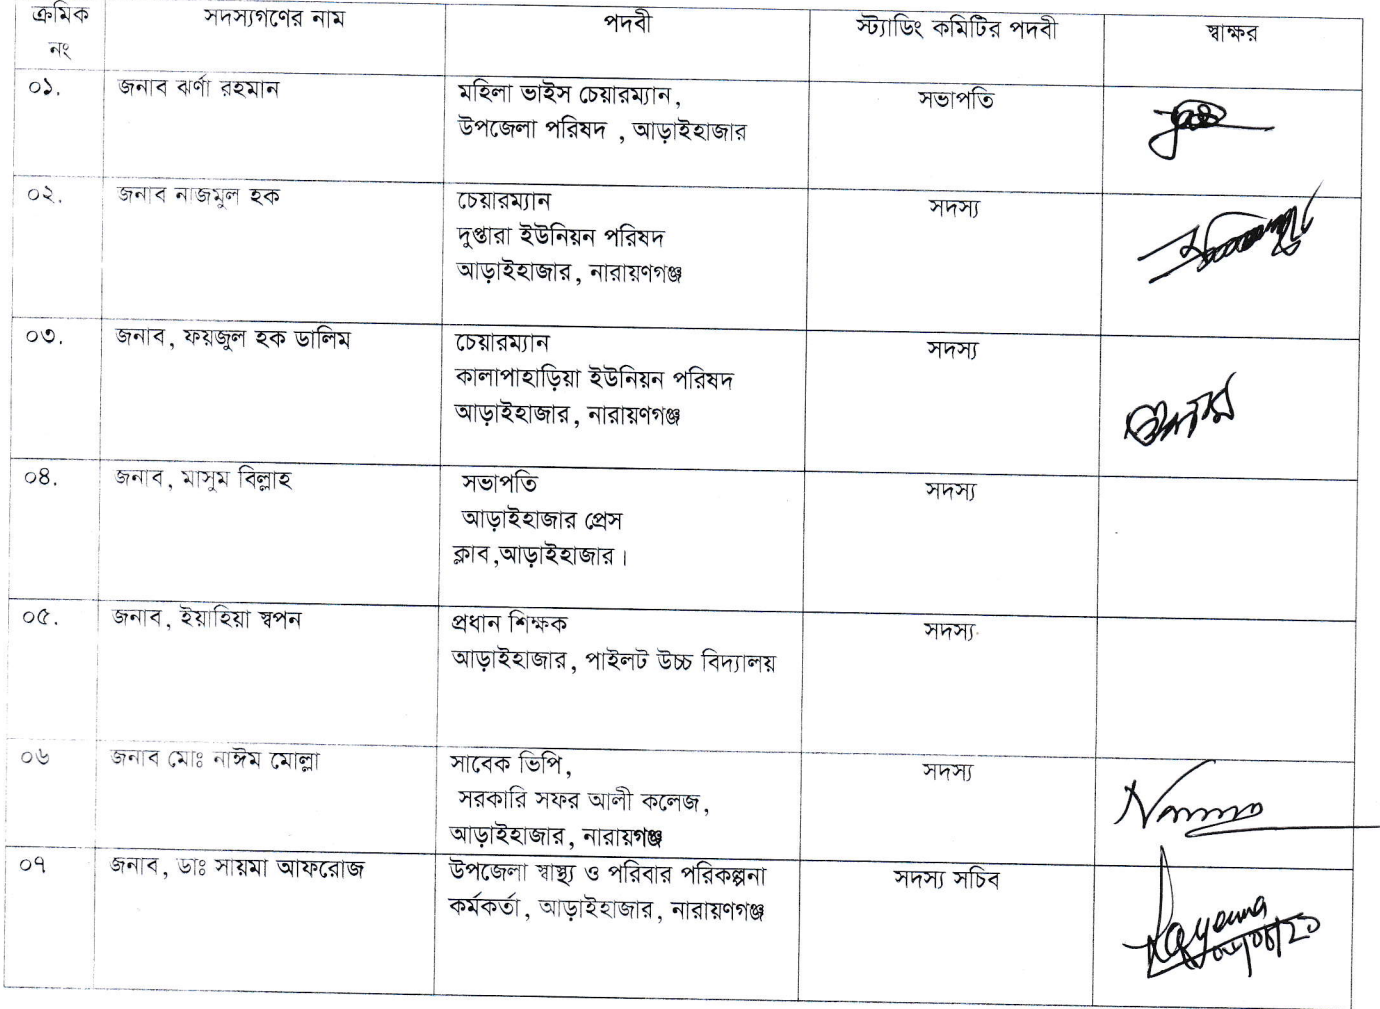 ক্রমিক নং সদস্যগণের নাম পদবী স্ট্যাডিং কমিটির পদবী স্বাক্ষর
০১. জনাব ঝর্ণা রহমান মহিলা ভাইস চেয়ারম্যান, সভাপতি
উপজেলা পরিষদ , আড়াইহাজার
০২. জনাব নাজমুল হক চেয়ারম্যান সদস্য
দুপ্তারা ইউনিয়ন পরিষদ
আড়াইহাজার, নারায়ণগঞ্জ
০৩. জনাব, ফয়জুল হক ডালিম চেয়ারম্যান সদস্য
কালাপাহাড়িয়া ইউনিয়ন পরিষদ
আড়াইহাজার, নারায়ণগঞ্জ
০৪. জনাব, মাসুম বিল্লাহ সভাপতি সদস্য
আড়াইহাজার প্রেস
ক্লাব,আড়াইহাজার।
০৫. জনাব, ইয়াহিয়া স্বপন প্রধান শিক্ষক সদস্য
আড়াইহাজার, পাইলট উচ্চ বিদ্যালয়
০৬ জনাব মোঃ নাঈম মোল্লা সাবেক ভিপি, সদস্য
সরকারি সফর আলী কলেজ,
আড়াইহাজার, নারায়গঞ্জ
০৭ জনাব, ডাঃ সায়মা আফরোজ উপজেলা স্বাস্থ্য ও পরিবার পরিকল্পনা সদস্য সচিব
কর্মকর্তা, আড়াইহাজার, নারায়ণগঞ্জ